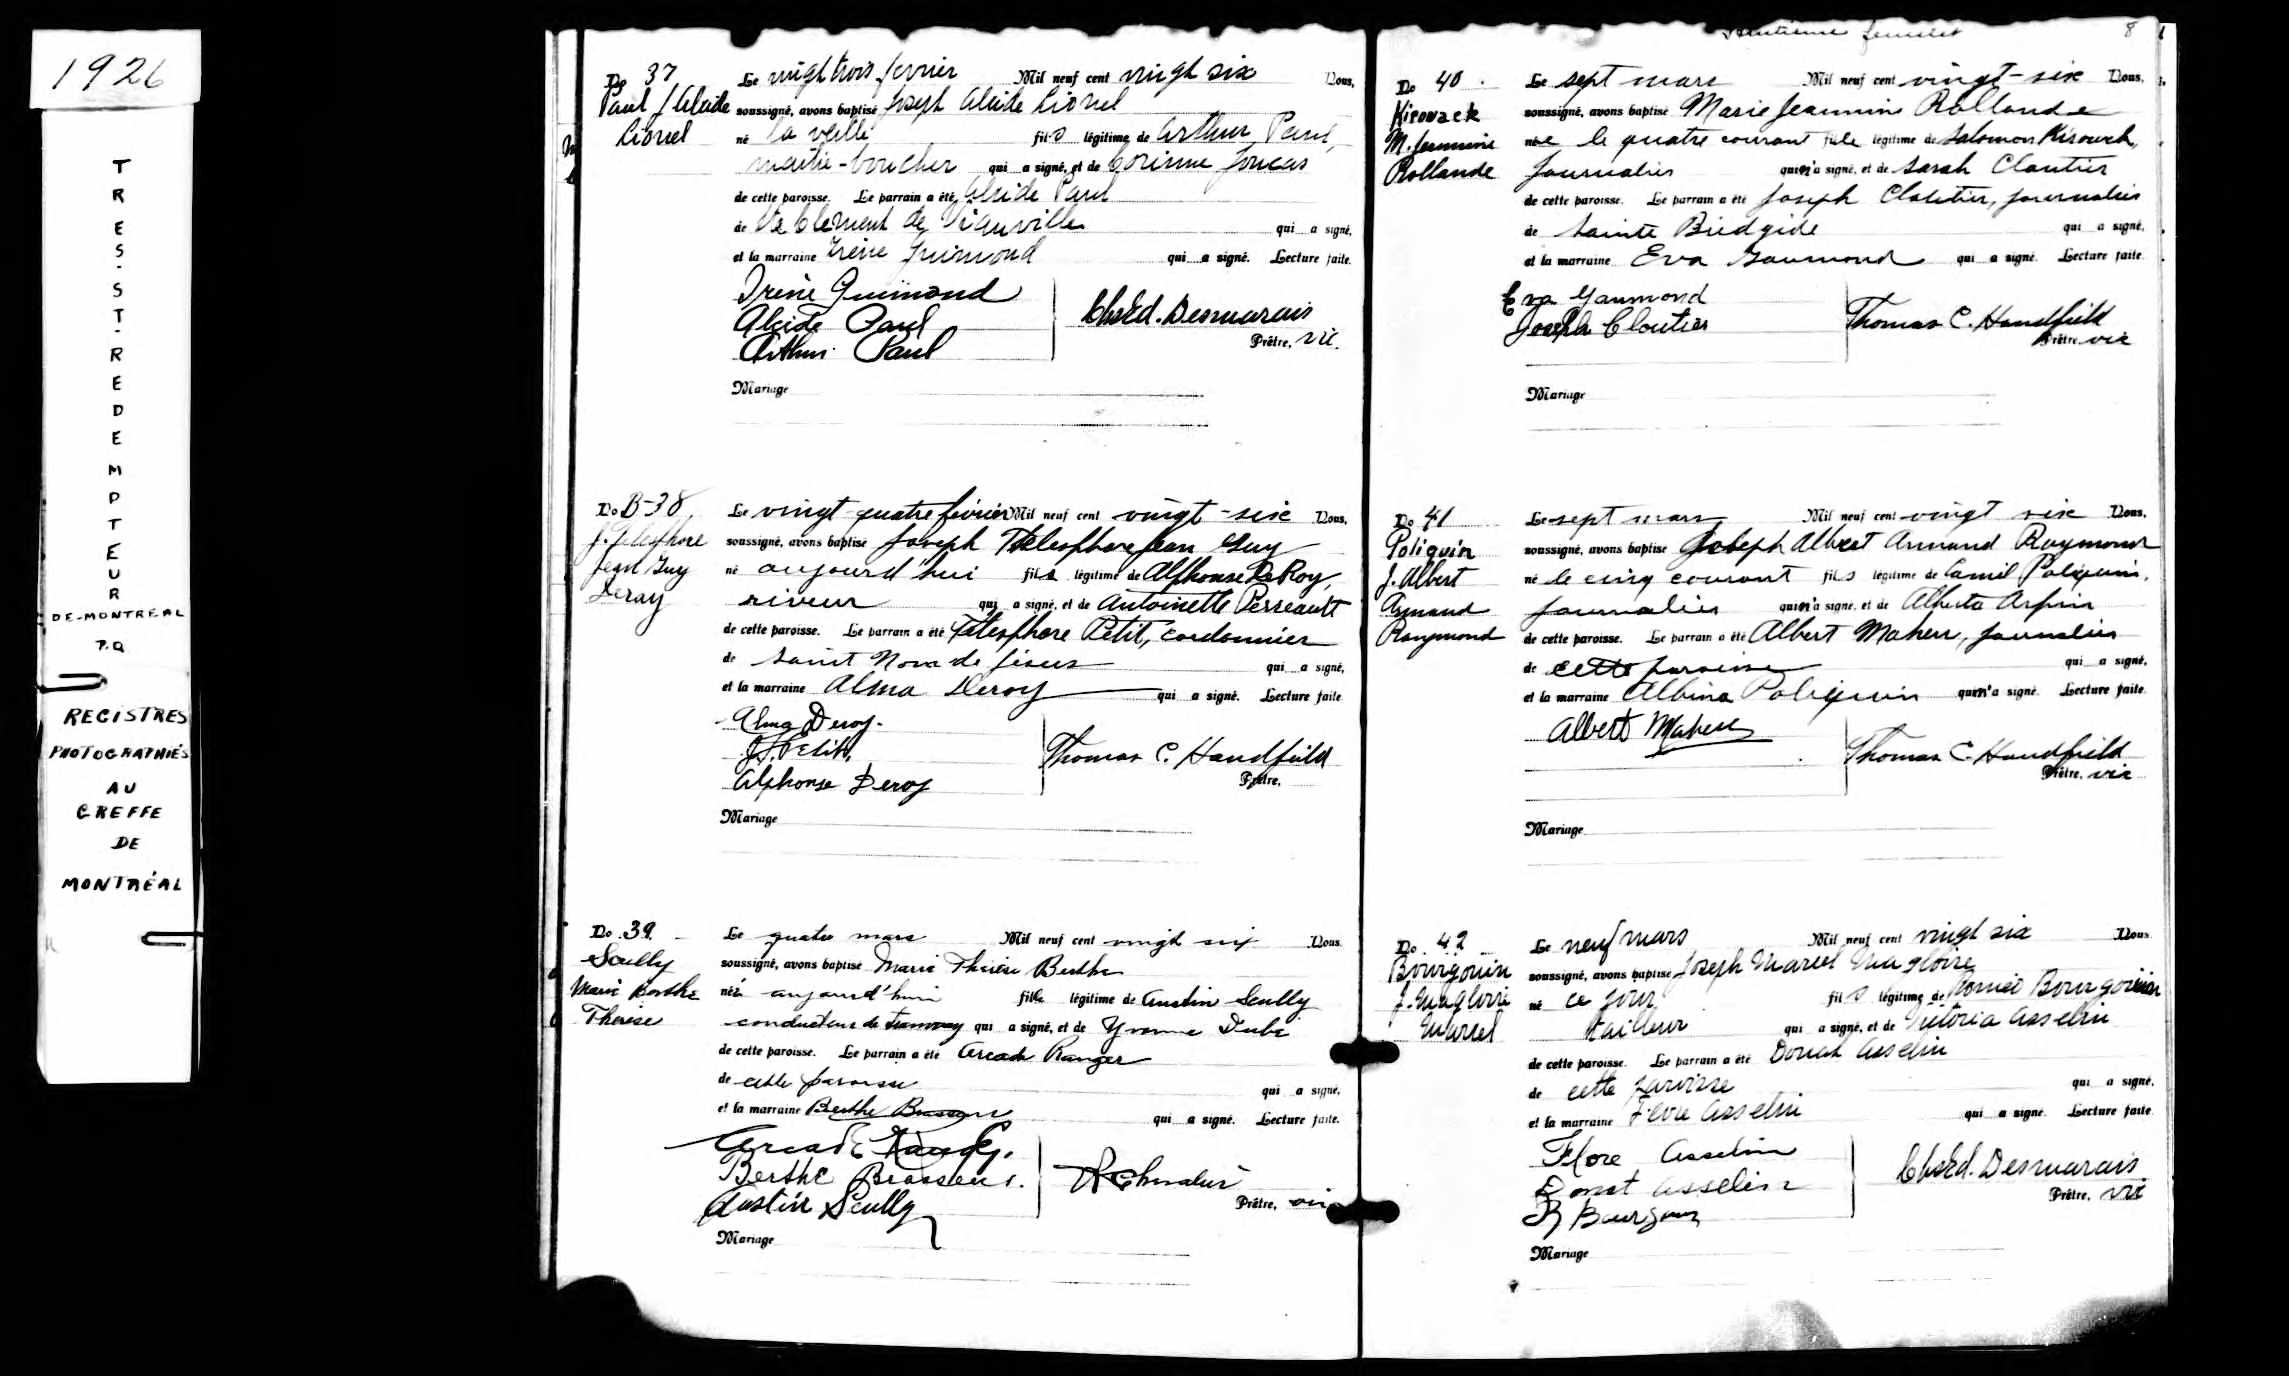 1926
TRES-ST-REDEMPTEUR
DE-MONTREAL
P.Q
REGISTRES
PHOTOGRAPHIÉS
AU
GREFFE
DE
MONTRÉAL
No 37
Paul J Alcide
Lionel
Le vingt trois fevrier Mil neuf cent vingt six Nous,
soussigné, avons baptisé Joseph Alcide Lionel
né la veille fils légitime de Arthur Paul,
maître-boucher qui a signé, et de Corinne Joncas
de cette paroisse. Le parrain a été Alcide Paul
de St Clément de Viauville qui a signé,
et la marraine Irène Guimond qui a signé. Lecture faite.
Irène Guimond
Alcide Paul
Arthur Paul
Chs Ed. Desmarais
Prêtre, vic.
Mariage
No B-38.
J. Télesphore
Jean Guy
Leroy
Le vingt-quatre février Mil neuf cent vingt-six Nous,
soussigné, avons baptisé Joseph Télesphore Jean Guy
né aujourd'hui fils légitime de Alphonse DeRoy,
riveur qui a signé, et de Antoinette Perreault
de cette paroisse. Le parrain a été Télesphore Petit, cordonnier
de Saint Nom de Jésus qui a signé,
et la marraine Alma Deroy qui a signé. Lecture faite.
Alma Deroy.
J.T. Petit.
Alphonse Deroy
Thomas C. Handfield
Prêtre,
Mariage
No 39.
Scully
Marie Berthe
Thérèse
Le quatre mars Mil neuf cent vingt six Nous
soussigné, avons baptisé Marie Thérèse Berthe
née aujourd'hui fille légitime de Austin Scully
conducteur de tramway qui a signé, et de Yvonne Dubé
de cette paroisse. Le parrain a été Arcade Ranger
de cette paroisse qui a signé,
et la marraine Berthe Brasseur qui a signé. Lecture faite.
Arcade Ranger.
Berthe Brasseur.
Austin Scully
Prêtre, vic
Mariage
Huitième feuillet 8
No 40.
Kirouack
M. Jeannine
Rollande
Le sept mars Mil neuf cent vingt-six Nous,
soussigné, avons baptisé Marie Jeannine Rollande
née le quatre courant fille légitime de Salomon Kirouack,
journalier qui n'a signé, et de Sarah Cloutier
de cette paroisse. Le parrain a été Joseph Cloutier, journalier
de Sainte Bridgide qui a signé,
et la marraine Eva Gaumond qui a signé. Lecture faite.
Eva Gaumond
Joseph Cloutier
Thomas C. Handfield
Prêtre vic
Mariage
No 41
Poliquin
J. Albert
Armand
Raymond
Le sept mars Mil neuf cent vingt six Nous,
soussigné, avons baptisé Joseph Albert Armand Raymond
né le cinq courant fils légitime de Camil Poliquin,
journalier qui n'a signé, et de Alberta Arpin
de cette paroisse. Le parrain a été Albert Maheu, journalier
de cette paroisse qui a signé,
et la marraine Albina Poliquin qui n'a signé. Lecture faite.
Albert Maheu
Thomas C. Handfield
Prêtre, vic
Mariage
No 42
Bourgouin
J. Magloire
Marcel
Le neuf mars Mil neuf cent vingt six Nous
soussigné, avons baptisé Joseph Marcel Magloire
né ce jour fils légitime de Roméo Bourgouin
tailleur qui a signé, et de Victoria Asselin
de cette paroisse. Le parrain a été Donat Asselin
de cette paroisse qui a signé,
et la marraine Flore Asselin qui a signé. Lecture faite.
Flore Asselin
Donat Asselin
R Bourgouin
Chs Ed. Desmarais
Prêtre, vic
Mariage